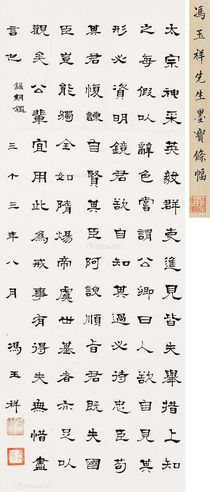 馮玉祥先生墨寶條幅
太宗神采英毅群臣進見皆失舉措上知
之每假以辭色嘗謂公卿曰人欲自見其
形必資明鏡君欲自知其過必待忠臣苟
其君愎諫自賢其臣阿諛順旨君既失國
臣豈能獨全如隋煬帝虞世基者亦足以
觀矣公輩宜用此為戒事有得失無惜盡
言也 錄綱鑑 三十三年八月 馮玉祥